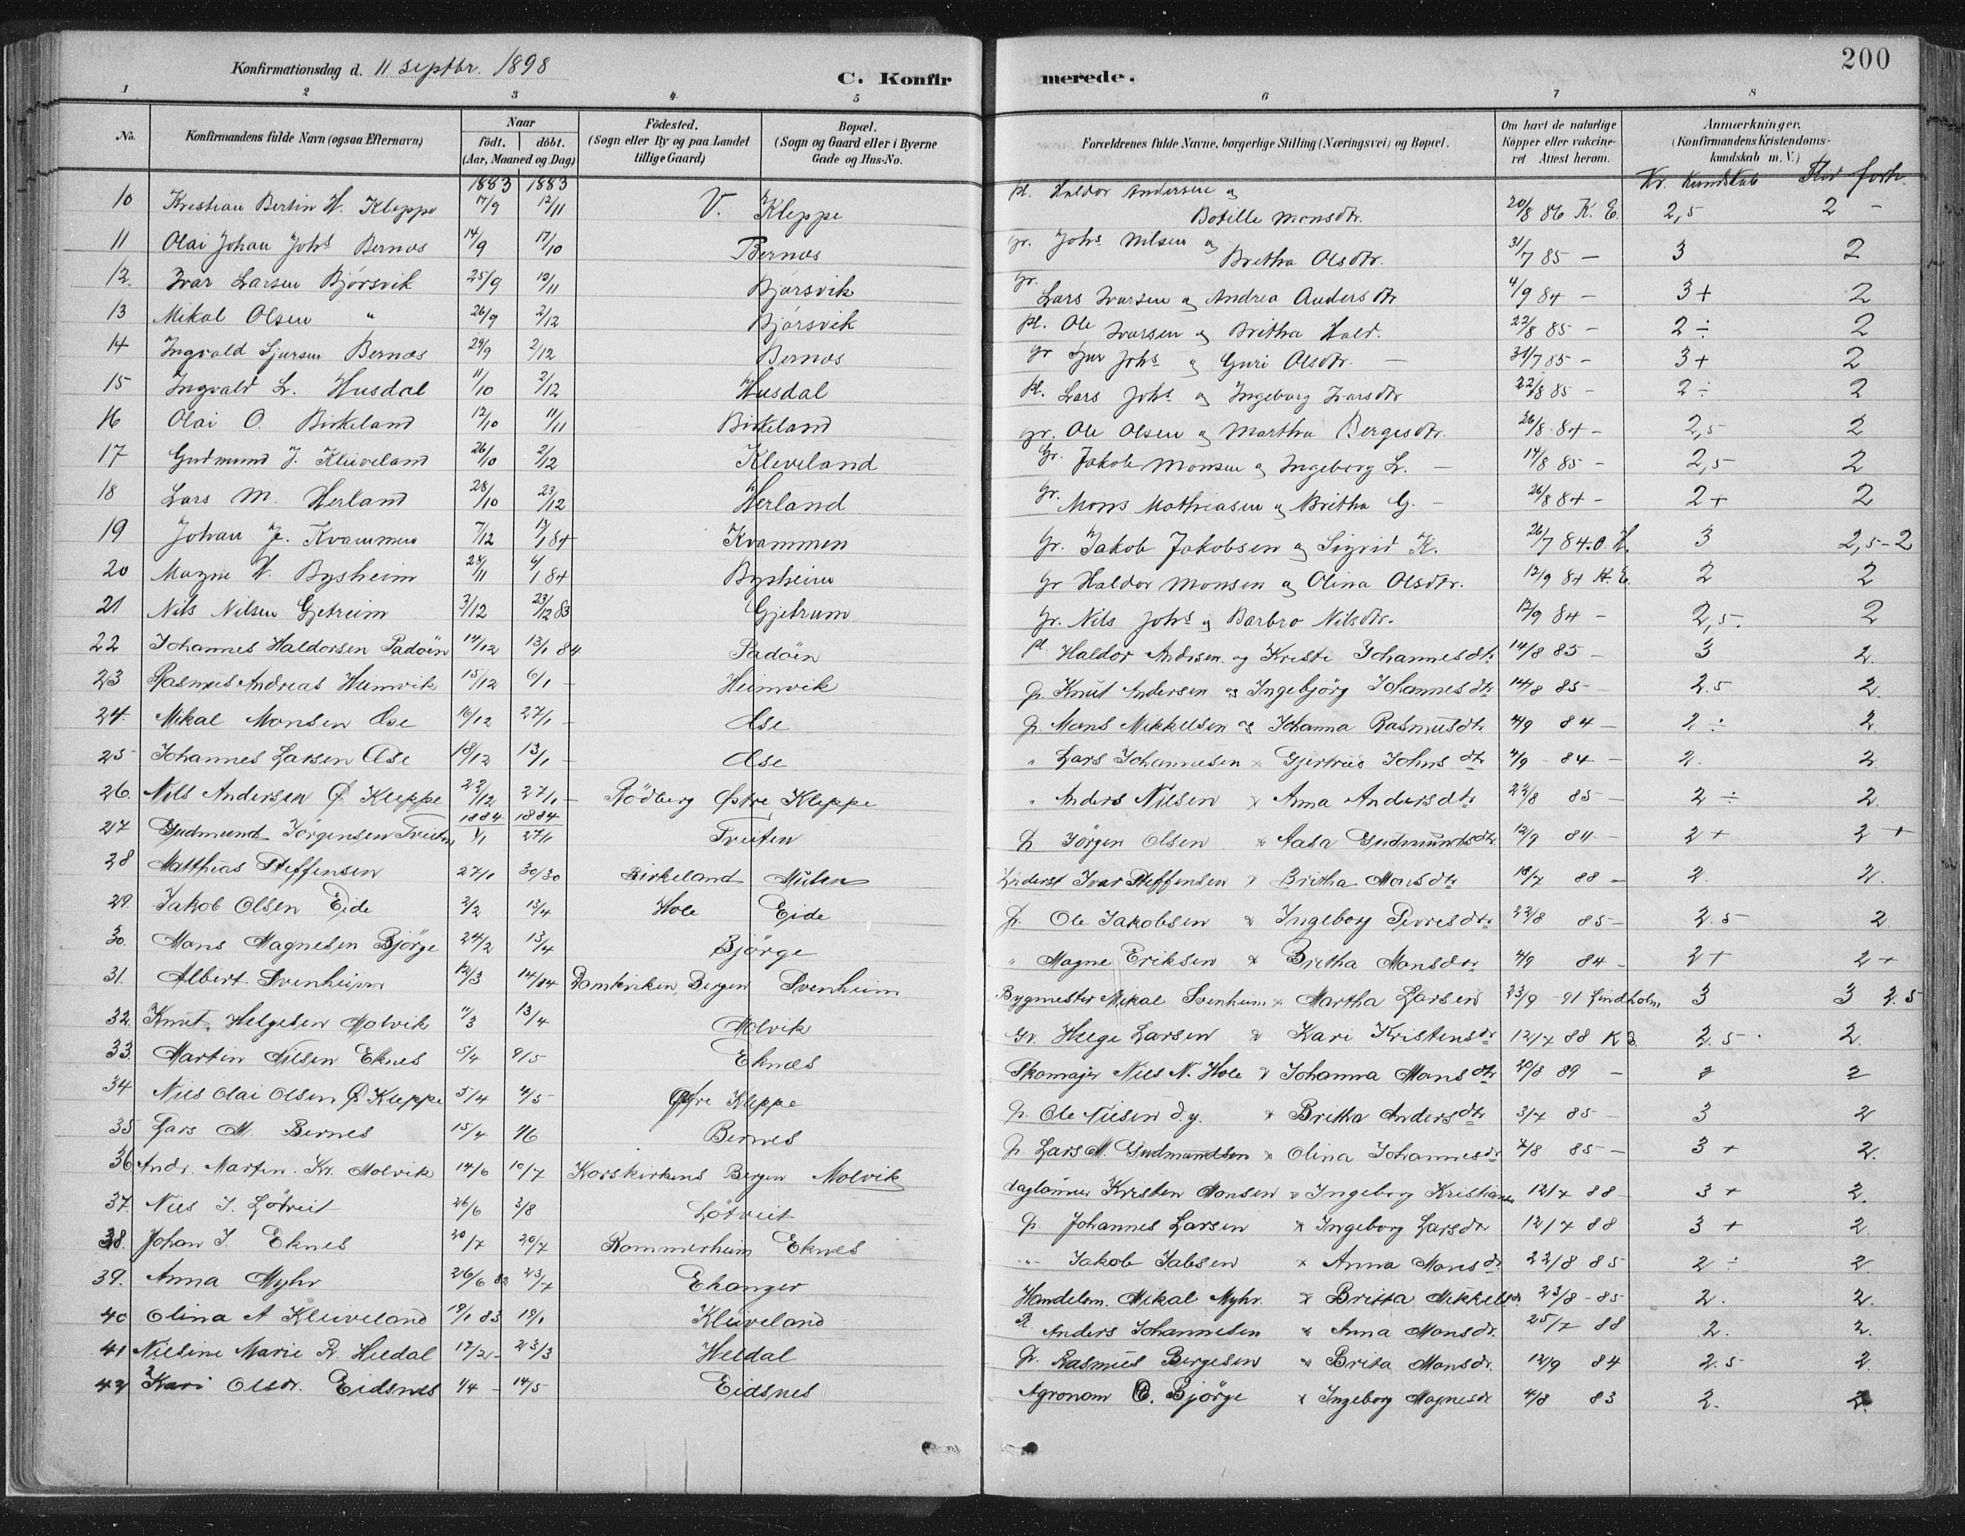 200
Konfirmationsdag d. 11 septbr. 1898
C. Konfirmerede.
1 2 3 4 5 6 7 8
No. Konfirmandens fulde Navn (ogsaa Efternavn) Naar födt. döbt. (Aar, Maaned og Dag) Födested. (Sogn eller By og paa Landet tillige Gaard) Bopæl. (Sogn og Gaard eller i Byerne Gade og Hus-No. Forældrenes fulde Navne, borgerlige Stilling (Næringsvei) og Bopæl. Om havt de naturlige Kopper eller vakcineret Attest herom. Anmærkninger. (Konfirmandens Kristendomskundskab m. V.)
1883 1883 Kr. Kundskab forh.
10 Kristian Bertin H. Kleppe 17/9 12/11 V. Kleppe pl. Haldor Andersen og Botille Monsdtr. 20/8 86 K. E. 2,5 2 -
11 Olai Johan Johs Bernæs 14/9 17/10 Bernæs gr. Johs Nilsen og Britha Olsdtr. 31/7 85 — 3 2
12. Ivar Larsen Bjørsvik 25/9 12/11 Bjørsvik gr. Lars Ivarsen og Andrea Andersdtr 4/9 84 - 3+ 2
13 Mikal Olsen " 26/9 2/12 Bjørsvik pl. Ole Ivarsen og Britha Hald. 22/8 85 - 2 ÷ 2
14 Ingvald Sjursen Bernæs 29/9 2/12 Bernæs gr Sjur Johs og Guri Olsdtr. — 31/7 85 - 3+ 2
15 Ingvald L. Husdal 11/10 2/12 Husdal pl. Lars Johs og Ingeborg Ivarsdtr 22/8 85 - 2 ÷ 2
16 Olai O. Birkeland 12/10 11/11 Birkeland gr. Ole Olsen og Martha Bergesdtr. 26/8 84 - 2,5 2
17 Gudmund J. Kleiveland 26/10 2/12 Kleveland Gr. Jakob Monsen og Ingeborg L. — 14/8 85 - 2,5 2
18 Lars M. Herland 28/10 23/12 Herland gr. Mons Mathiasen og Britha G. — 26/8 84 - 2+ 2
19 Johan J. Kvammen 7/12 1 84 Kvammen Gr. Jakob Jakobsen og Sigrid K. 26/7 84. O. H. 3 2,5-2
20 Magne H. Bysheim 24/11 6/1 84 Bysheim Gr Haldor Monsen og Olina Olsdtr. 12/9 84 K. E. 2 2
21 Nils Nilsen Gjetreim 3/12 23/12 83 Gjetrum Gr. Nils Johs og Barbro Nilsdtr. 12/9 84 — 2,5- 2
22 Johannes Haldorsen Padöin 14/12 13/1 84 Padöin pl. Haldor Andrsen og Kristi Johannesdtr 14/8 85 — 3 2.
23 Rasmus Andreas Heimvik 15/12 6/1 — Heimvik G. Knut Andersen og Ingebjörg Johannesdtr 14/8 85 — 2.5 2.
24. Mikal Monsen Ase 16/12 27/1 — Ase G. Mons Mikkelsen og Johanna Rasmusdtr 4/9 84 — 2 ÷ 2
25 Johannes Larsen Ase 18/12 13/1 — Ase " Lars Johannesen Johns dtr 4/9 - 84 — 2. 2.
26. Nils Andersen Ø. Kleppe 22/12 27/1 — Rödberg Østre Kleppe " Anders Nilsen & Anna Andersdtr 22/8 85 — 2 ÷ 2.
1884 1884
27 Gudmund Jörgensen Tveiten 1/1 27/1 Tveiten G. Jörgen Olsen & Aasa Gudmundsdtr 12/9 84 — 2 + 2 +
28 Matthias Steffensen 27/1 30/30 Birkeland Mulen Ivar Steffensen & Britha Monsdtr 18/7 88 — 2. 2.
29 Jakob Olsen Eide 2/2 13/4 Hole Eide G. Ole Jakobsen & Ingeborg 22/8 85 — 2.5 2
30. Mons Magnesen Björge 24/2 13/4 Björge " Magne Eriksen & Britha Monsdtr 4/9 84 — 2 + 2 +
31. Albert Svenheim 12/3 14/84 Domkirken, Bergen Svenheim Bygmester Mikal Svenheim & Martha Larsen 23/9 - 91 Lindholm 3 3 2.5
32. Knut Helgesen Molvik 11/3 13/4 Molvik Gr. Helge Larsen & Kari Kristensdtr 12/7 88 K 2.5 2.
33. Martin Nilsen Eknes 5/4 9/5 Eknes Skomager Nils N. Hole & Johanna Monsdtr 20/8 89 — 2 2
34 Nils Olai Olsen Ø. Kleppe 5/4 4/5 Østre Kleppe G. Ole Nilsen d.y. & Britha Andersdtr 3/7 85 — 3 2
35 Lars M. Bernes 15/4 Bernes G. Lars M. Gudmundsen & Olina Johannesdtr 85 — 3 + 2.
36 Andr. Martin Kr. Molvik 14/6 10/7 Korskirkens Bergen Molvik Kristen Monsen & Ingeborg Kristians 12/7 88 — 3 + 2.
37. Nils J. Lötveit 26/6 3/8 Lötveit G. Johannes Larsen & Ingeborg Larsdtr 12/7 88 3 + 2.
38. Johan J. Eknes 20/7 20/7 Rommerheim Eknes " Jakob Jabsen & Anna Monsdtr 22/8 85 2 ÷ 2.
39. Anna Myhr 26/6 82 23/7 Ekanger Handelsm. Mikal Myhr. & Britta Mikkelsdtr. 23/8 - 85 2. 2.
40 Olina A Kleiveland 19/1 83 19/1 Kleiveland Pl Anders Johannesen & Anna Monsdtr. 25/7 88 2. 2.
41 Nielsine Marie R. Heldal 17/2 - 23/3 Heldal G. Rasmus Bergesen & Brita Monsdtr. 12/9 84 2.5 2.
42 Kari Olsdr. Eidsnes 1/4 - 14/5 Eidsnes Agronom O. Björge & Ingeborg Magnesdr 4/8 83 2. 2.